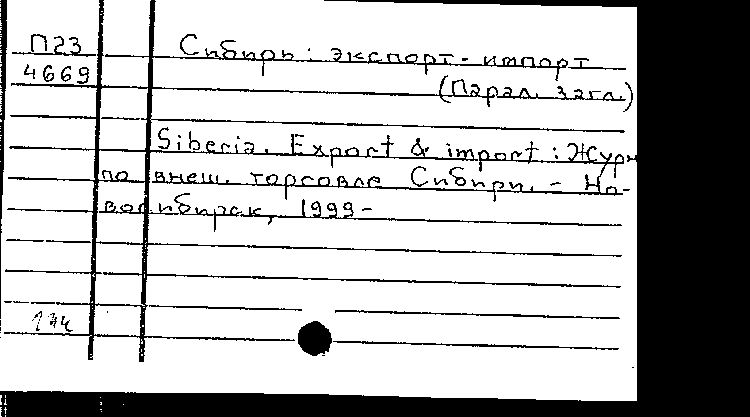 П23
4669
Сибирь: экспорт-импорт
(Парал. загл.)
Siberia. Export & import : Журн
по внеш. торговле Сибири. - Но-
восибирск, 1999-